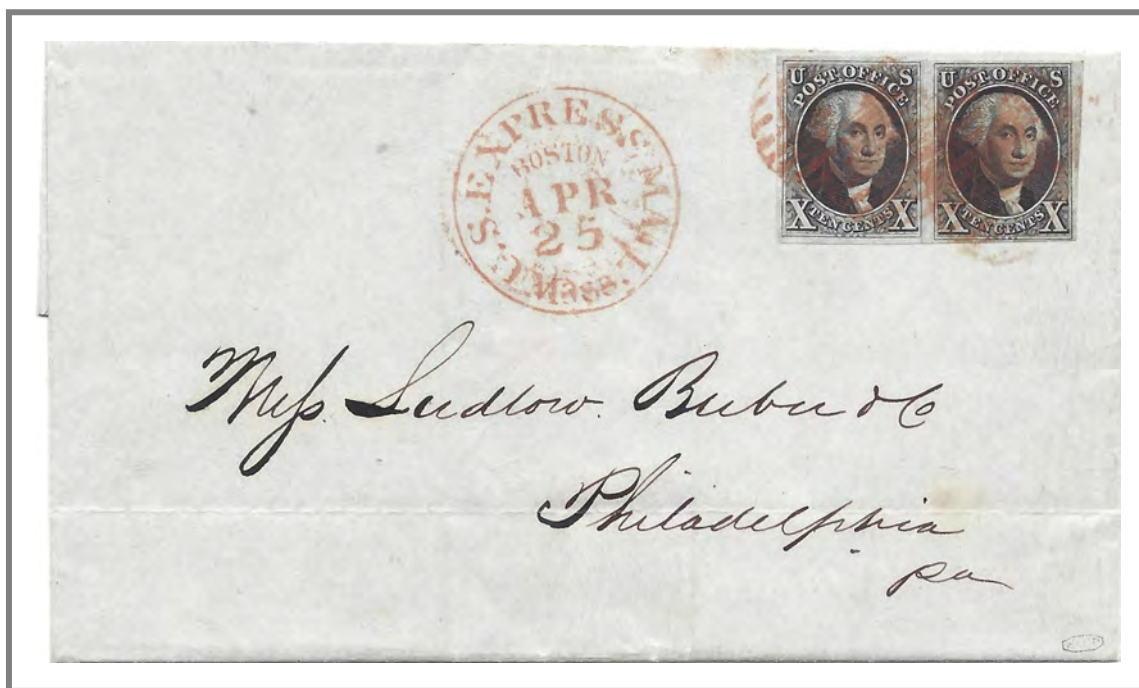 U.S. EXPRESS MAIL
BOSTON
APR
25
Mass.
U S
POST OFFICE
X TEN CENTS X
U S
POST OFFICE
X TEN CENTS X
Mess. Ludlow. & Co
Philadelphia
Pa